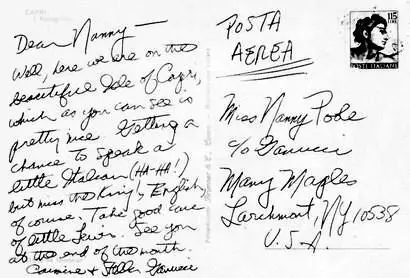 CAPRI
Dear Nanny —
Well, here we are on the
beautiful Isle of Capri,
which as you can see is
pretty nice. Getting a
chance to speak a
little Italian (HA-HA!)
but miss the King's English,
of course. Take good care
of little Lewis. See you
at the end of the month.
& Stella
POSTA
AEREA
115
LIRE
POSTE ITALIANE
Miss Nanny Pobe
c/o
Many Maples
Larchmont, NY 10538
U.S.A.